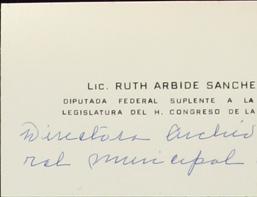 LIC. RUTH ARBIDE SANCHE
DIPUTADA FEDERAL SUPLENTE A LA
LEGISLATURA DEL H. CONGRESO DE LA
Directora Archiv
ral municipal